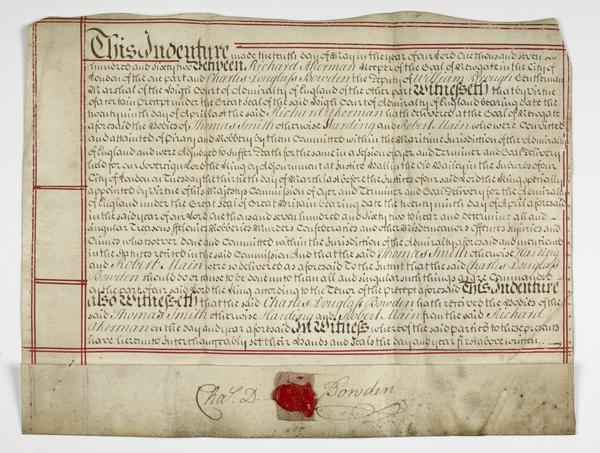 This Indenture made the tenth day of May in the year of our Lord one thousand seven
hundred and Sixty two Between Richard Akerman Keeper of the Goal of Newgate in the City of
London of the one part and Charles Douglass Bowden the Deputy of William Brough Gentleman
Marshal of the High Court of Admiralty of England of the other part Witnesseth that by Virtue
of a certain Precept under the Great Seal of the said High Court of Admiralty of England bearing date the
twenty ninth day of April last the said Richard Akerman hath delivered at the Goal of Newgate
aforesaid the Bodies of Thomas Smith otherwise Harding and Robert Main who were Convicted
and attainted of Piracy and Robbery by them Committed within the Maritime Jurisdiction of the Admiralty
of England and were adjudged to suffer Death for the same in a Session of Oyer and Terminer and Goal Delivery
held for our Sovereign Lord the King by adjournment at Justice Hall in the Old Bailey in the Suburbs of our
City of London on Tuesday the thirtieth day of March last before the Justices of our said Lord the King specially
appointed by Virtue of his Majestys Commission of Oyer and Terminer and Goal Delivery for the Admiralty
of England under the Great Seal of Great Britain bearing date the twenty ninth day of April aforesaid
in the said year of our Lord one thousand seven hundred and Sixty two to hear and determine all and
singular Treasons ffelonies Robberies Murders Confederacies and other Misdemeanors Offences Injuries and
Crimes whatsoever done and Committed within the Jurisdiction of the Admiralty aforesaid and mentioned
in the Statutes recited in the said Commission And that the said Thomas Smith otherwise Harding
and Robert Main were so delivered as aforesaid To the Intent that the said Charles Douglass
Bowden should do or cause to be done unto them all and singular such things as are Commanded
on the part of our said Lord the King according to the Tenor of the precept aforesaid This Indenture
also Witnesseth that the said Charles Douglass Bowden hath received the Bodies of the
said Thomas Smith otherwise Harding and Robert Main from the said Richard
Akerman on the day and year aforesaid In Witness whereof the said parties to these presents
have hereunto Interchangeably set their Hands and Seals the day and year first above written
Chas. D. Bowden